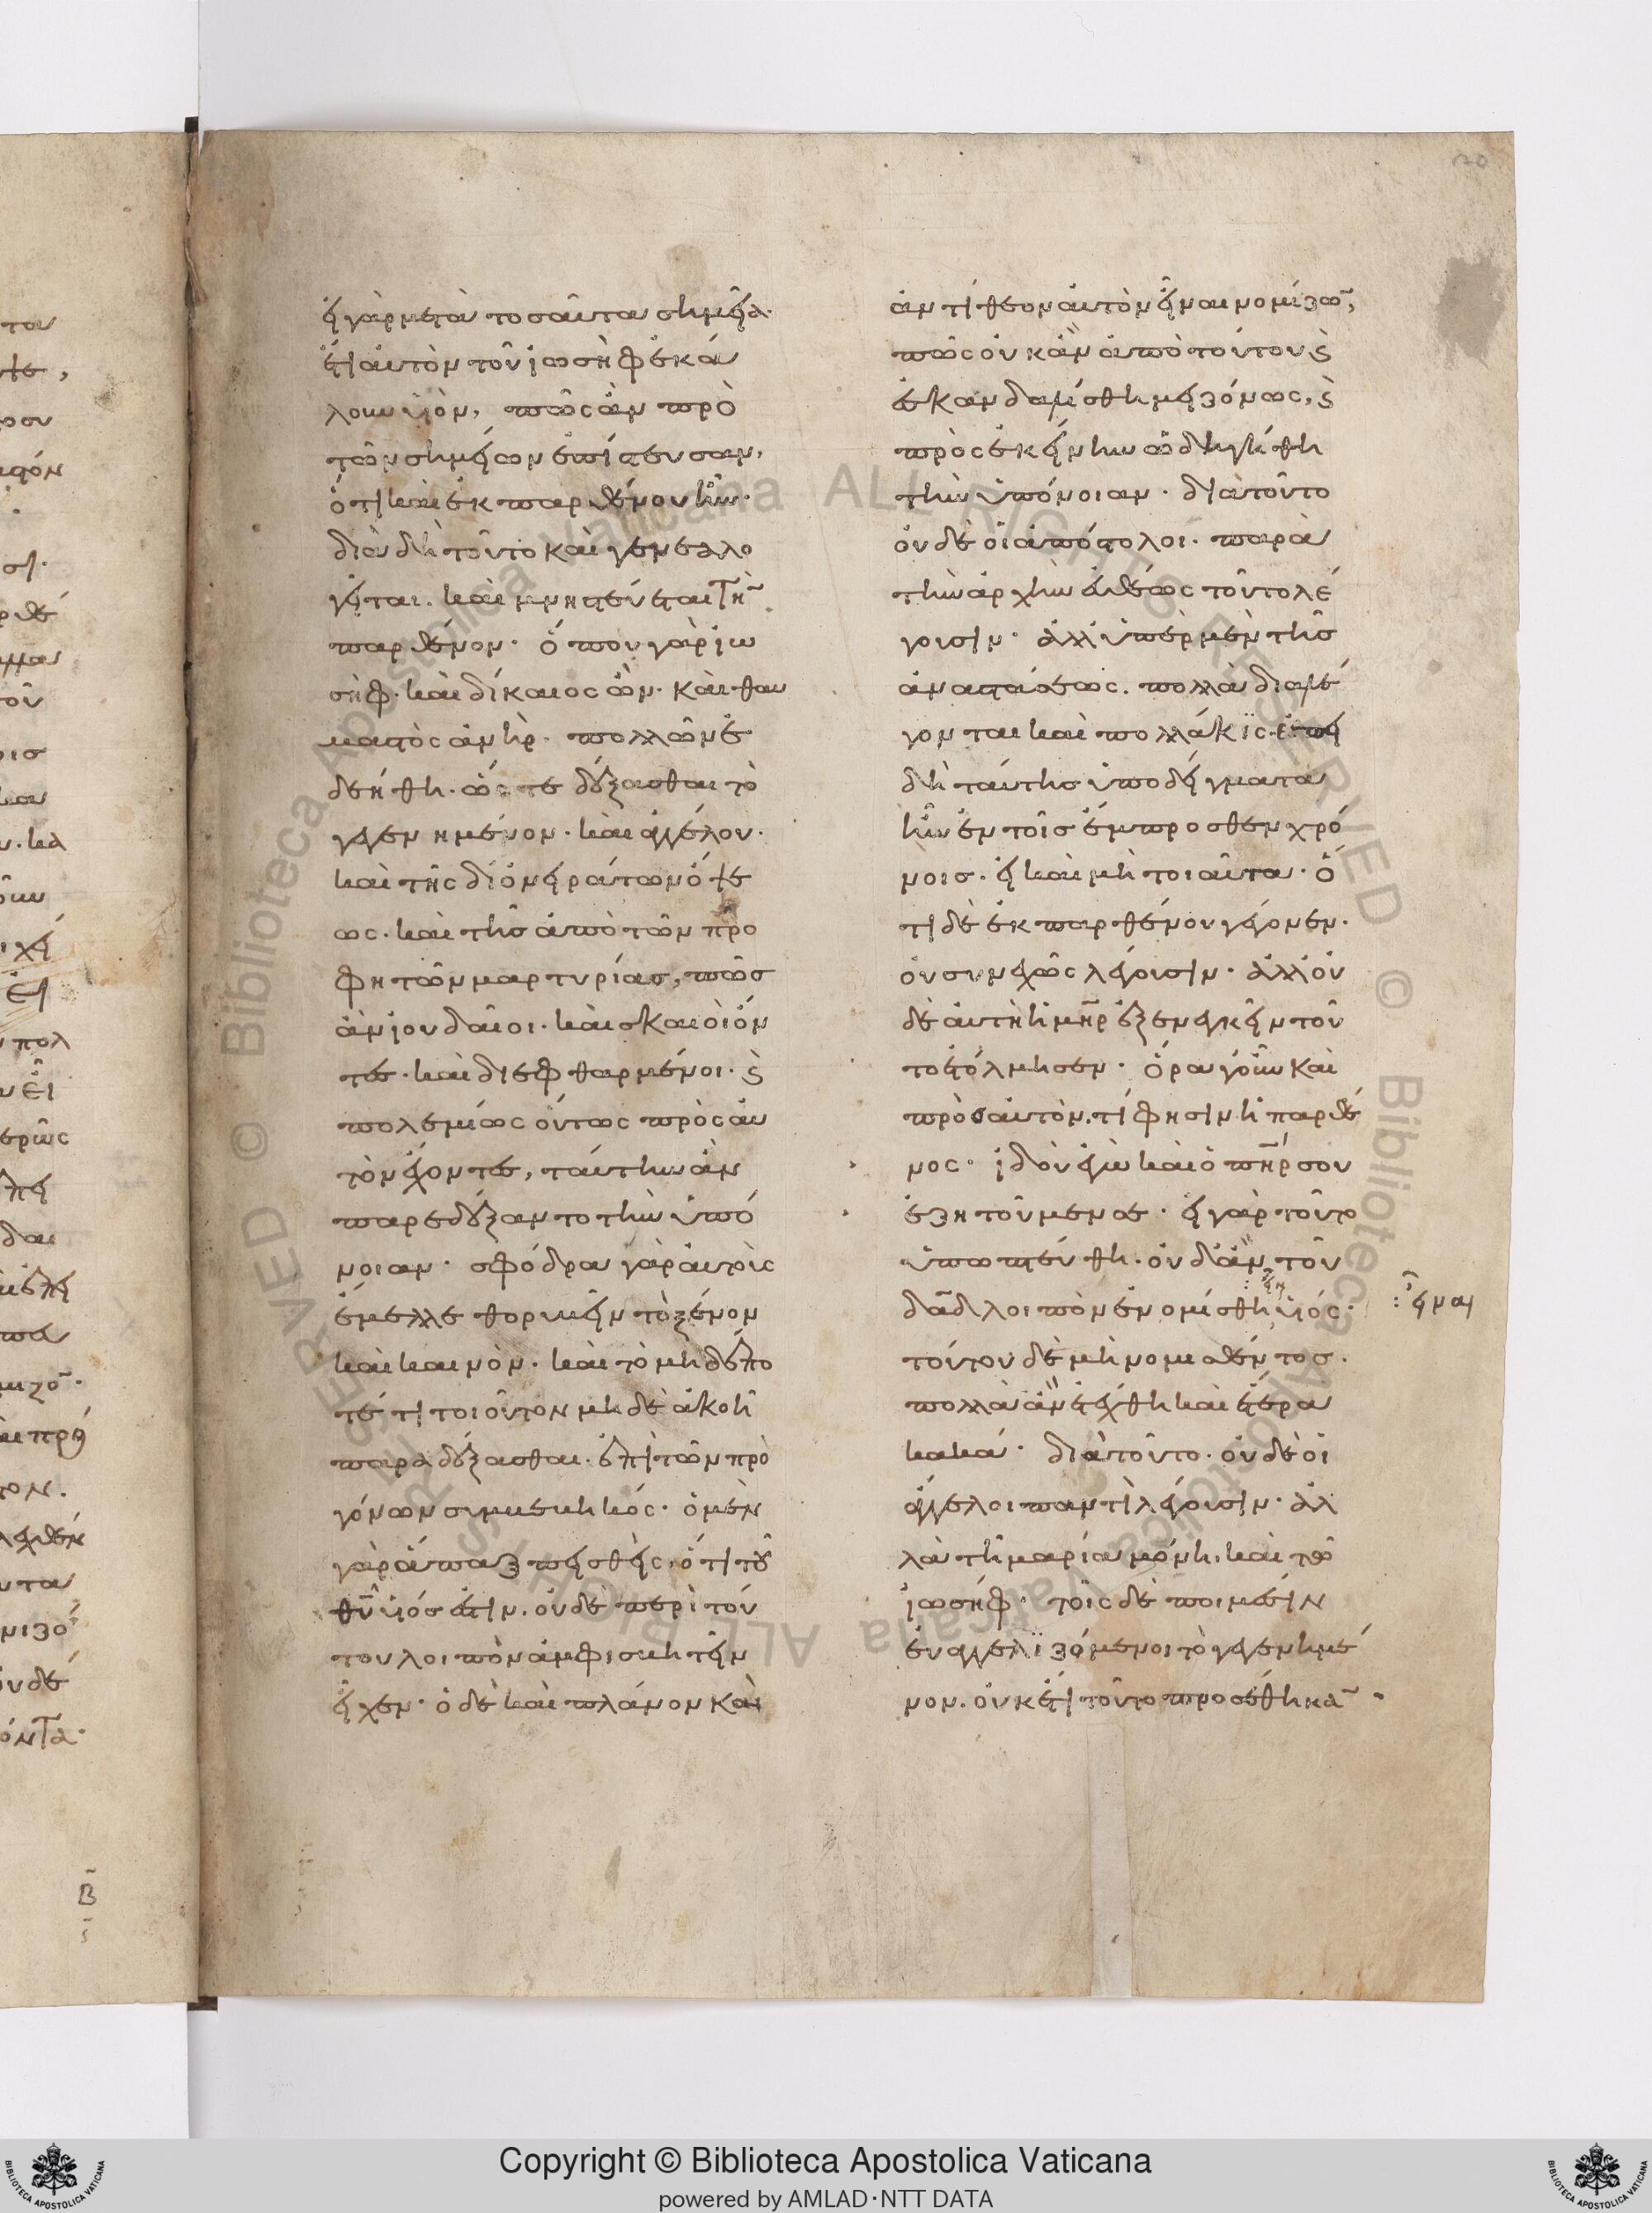 εἰ γὰρ μετὰ τοσαῦτα σημεῖα
ἔτι αὐτὸν τοῦ ἰωσὴφ ἐκά
λουν υἱὸν, πῶς ἂν πρὸ
τῶν σημείων ἐπίστευσαν,
ὅτι καὶ ἐκ παρθένου ἦν·
διὰ δὴ τοῦτο καὶ γενεαλο
γεῖται. καὶ μνηστεύεται τὴν
παρθένον· ὅπου γὰρ ἰω
σὴφ· καὶ δίκαιος ὢν· καὶ θαυ
μαστὸς ἀνὴρ· πολλῶν ἐ
δεήθη· ὥστε δέξασθαι τὸ
γεγενημένον· καὶ ἀγγέλου·
καὶ τῆς δι' ὀνειράτων ὄψε
ως· καὶ τῆς ἀπὸ τῶν προ
φητῶν μαρτυρίας, πῶς
ἂν ἰουδαῖοι· καὶ σκαιοὶ ὄν
τες· καὶ διεφθαρμένοι· ϗ
πολεμίως οὕτως πρὸς αὐ
τὸν ἔχοντες, ταύτην ἂν
παρεδέξαντο τὴν ὑπό
νοιαν· σφόδρα γὰρ αὐτοὺς
ἔμελλε θορυβεῖν τὸ ξένον
καὶ καινὸν· καὶ τὸ μηδέπο
τέ τι τοιοῦτον μηδὲ ἀκοῆ
παραδέξασθαι· ἐπὶ τῶν προ
γόνων συμβεβηκός· ὁ μὲν
γὰρ ἅπαξ πεισθεὶς, ὅτι τοῦ
θυ υἱός ἐστιν. οὐδὲ περὶ τού
του λοιπὸν ἀμφισβητεῖν
εἶχεν· ὁ δὲ καὶ πλάνον καὶ
ἀντίθεον αὐτὸν εἶναι νομίζων,
πῶς οὐκ ἂν ἀπὸ τούτου ϗ
ἐσκανδαλίσθη μειζόνως, ϗ
πρὸς ἐκείνην ὡδηγήθη
τὴν ὑπόνοιαν· διὰ τοῦτο
οὐδὲ οἱ ἀπόστολοι· παρὰ
τὴν ἀρχὴν εὐθέως τοῦτο λέ
γουσιν· ἀλλ' ὑπὲρ μὲν τῆς
ἀναστάσεως. πολλὰ διαλέ
γονται καὶ πολλάκις· ἐπει
δὴ ταύτης ὑποδείγματα
ἦν ἐν τοῖς ἔμπροσθεν χρό
νοις. εἰ καὶ μὴ τοιαῦτα· ὅ
τι δὲ ἐκ παρθένου γέγονεν·
οὐ συνεχῶς λέγουσιν· ἀλλ' οὐ
δὲ αὐτὴ ἡ μηρ ἐξενεγκεῖν τοῦ
το ἐτόλμησεν· ὅρα γοῦν καὶ
πρὸς αὐτὸν. τί φησιν ἡ παρθέ
νος· ἰδοὺ ἐγὼ καὶ ὁ πηρ σου
ἐζητοῦμεν σε· εἰ γὰρ τοῦτο
ὑπωπτεύθη· οὐδ' ἂν τοῦ
δαδ λοιπὸν ἐνομίσθη υἱός·
: εἶναι
τούτου δὲ μὴ νομισθέντος·
πολλὰ ἂν ἐτέχθη καὶ ἕτερα
κακά· διὰ τοῦτο· οὐδὲ οἱ
ἄγγελοι παντὶ λέγουσιν· ἀλ
λὰ τῆ μαρία μόνη, καὶ τῶ
ἰωσήφ· τοῖς δὲ ποιμέσιν
εὐαγγελιζόμενοι τὸ γεγενημέ
νον. οὐκ ἔτι τοῦτο προσέθηκαν ·
Copyright © Biblioteca Apostolica Vaticana
powered by AMLAD·NTT DATA